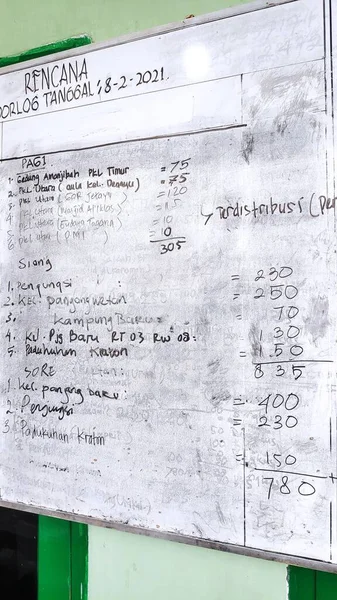 RENCANA
DORLOG TANGGAL, 8-2-2021.
PAGI
1. Gedung Amanjibah PKL Timur = 75
2. PKL Utara (aula kel. Degayu) = 75
3. PKL Utara (GOR Jetayu) = 120
4. PKL Utara (Masjid = 15
5. PKL Utara (Gudang = 10
6. PKL Utara (PMI) = 10
305
→ Terdistribusi (Per
Siang
1. Pengungsi : = 230
2. Kel. panjang wetan = 250
3. Kampung Baru = 70
4. Kel. Pjg Baru RT 03 RW 08 : = 130
5. Padukuhan Kraton = 150
835
SORE
1. Kel. panjang baru : = 400
2. Pengungsi = 230
3. Padukuhan Kraton = 150
780